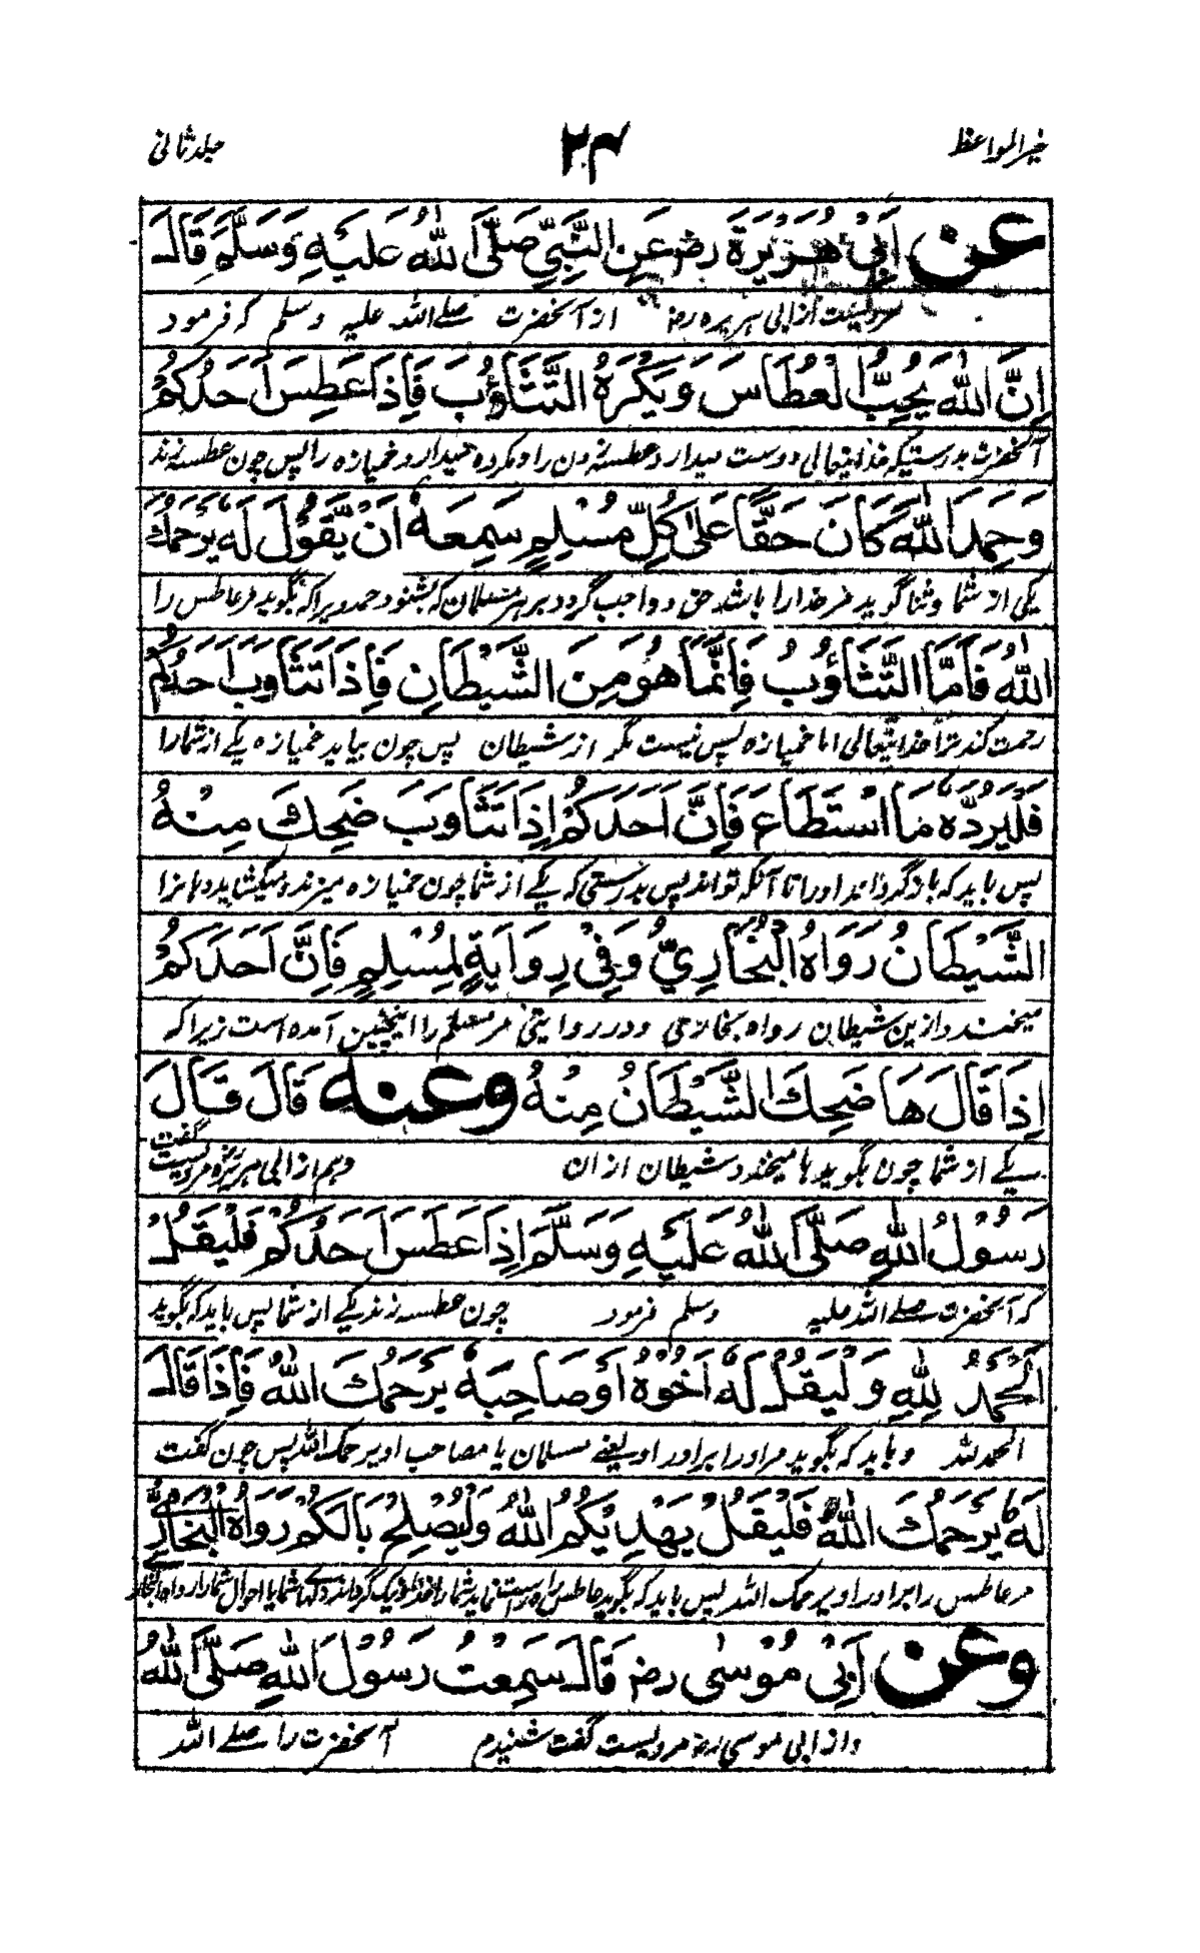 خیر المواعظ ۲۴ جلد ثانی
عَنْ اَبِیْ هُرَیْرَةَ رضـ عَنِ النَّبِيِّ صَلَّى اللّٰهُ عَلَیْهِ وَسَلَّمَ قَالَ
مرویست از ابی هریره رضـ از آنحضرت صلے اللہ علیه وسلم که فرمود
اِنَّ اللّٰهَ یُحِبُّ الْعُطَاسَ وَیَکْرَهُ التَّثَاؤُبَ فَاِذَا عَطِسَ اَحَدُکُمْ
آنحضرت بدرستیکه خدایتعالی دوست میدارد عطسه زدن را و مکروه میدارد خمیازه را پس چون عطسه زند
وَحَمِدَ اللّٰهَ کَانَ حَقًّا عَلٰی کُلِّ مُسْلِمٍ سَمِعَهٗ اَنْ یَّقُوْلَ لَهٗ یَرْحَمُكَ
یکی از شما و ثنا گوید مر خدا را باشد حق و واجب گردد بر هر مسلمان که بشنود حمد ویرا که بگوید مر عاطس را
اللّٰهُ فَاَمَّا التَّثَاؤُبُ فَاِنَّمَا هُوَ مِنَ الشَّیْطَانِ فَاِذَا تَثَاوَبَ اَحَدُکُمْ
رحمت کند ترا خدایتعالی اما خمیازه پس نیست مگر از شیطان پس چون بیاید خمیازه یکے از شما را
فَلْیَرُدَّهٗ مَا اسْتَطَاعَ فَاِنَّ اَحَدَکُمْ اِذَا تَثَاوَبَ ضَحِكَ مِنْهُ
پس باید که باز گرداند او را تا آنکه تواند پس بدرستی که یکے از شما چون خمیازه میزند و میگشاید دهانرا
الشَّیْطَانُ رَوَاهُ الْبُخَارِيُّ وَفِیْ رِوَایَةٍ لِمُسْلِمٍ فَاِنَّ اَحَدَکُمْ
میخندد ازین شیطان رواه بخاری و در روایتی مر مسلم را اینچنین آمده است زیرا که
اِذَا قَالَ هَا ضَحِكَ الشَّیْطَانُ مِنْهُ وَعَنْهُ قَالَ قَالَ
یکے از شما چون بگوید ها میخندد شیطان از ان وهم از ابی هریره مرویست گفت
رَسُوْلُ اللّٰهِ صَلَّى اللّٰهُ عَلَیْهِ وَسَلَّمَ اِذَا عَطَسَ اَحَدُکُمْ فَلْیَقُلْ
که آنحضرت صلے اللہ علیه وسلم فرمود چون عطسه زند یکے از شما پس باید که بگوید
اَلْحَمْدُ لِلّٰهِ وَلْیَقُلْ لَهٗ اَخُوْهُ اَوْ صَاحِبُهٗ یَرْحَمُكَ اللّٰهُ فَاِذَا قَالَ
الحمد للہ و باید که بگوید مر او را برادر او یعنے مسلمان یا مصاحب او یرحمک اللہ پس چون گفت
لَهٗ یَرْحَمُكَ اللّٰهُ فَلْیَقُلْ یَهْدِیْکُمُ اللّٰهُ وَیُصْلِحُ بَالَکُمْ رَوَاهُ الْبُخَارِيُّ
مر عاطس را برادر او یرحمک اللہ پس باید که بگوید عاطس راه راست نماید شما را خدا و نیک گرداند دلهای شما یا احوال شما را رواه البخاری
وَعَنْ اَبِیْ مُوْسٰی رضـ قَالَ سَمِعْتُ رَسُوْلَ اللّٰهِ صَلَّى اللّٰهُ
و از ابی موسی رضـ مرویست گفت شنیدم آنحضرت را صلے اللہ